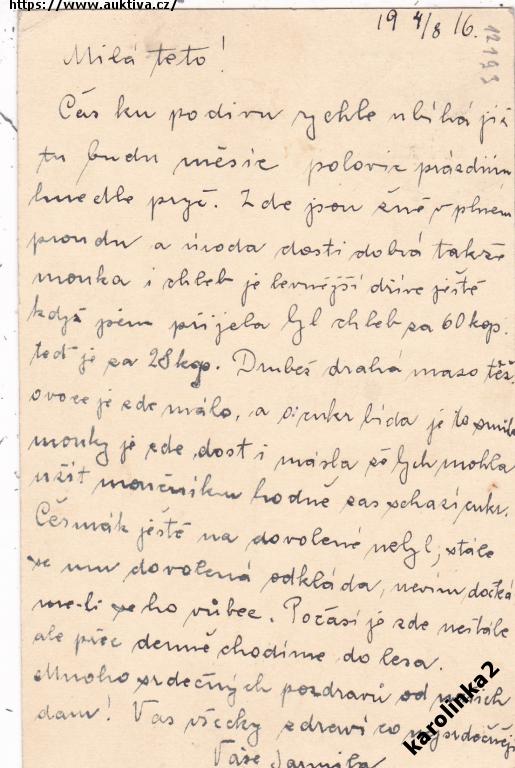 https://www.auktiva.cz/
19 4/8 16.
12193
Milá teto!
Čas ku podivu rychle ubíhá již
tu budu měsíc polovic prázdnin
hnedle pryč. Zde jsou žně v plném
proudu a úroda dosti dobrá takže
mouka i chleb je levnější dříve ještě
když jsem přijela byl chleb za 60 kop.
teď je za 28 kop. Drubež drahá maso též.
ovoce je zde málo, a o cukr bída je to
mouky je zde dost i másla že bych mohla
užít moučníku hodně zas schazí cukr.
Čermák ještě na dovolené nebyl, stále
se mu dovolená odkládá, nevím dočká
me-li se ho vůbec. Počasí je zde nestálé
ale přec denně chodíme do lesa.
Mnoho srdečných pozdravů od
dam! Vas všecky zdraví co nejsrdečněji
Vaše Jarmila
karolinka2